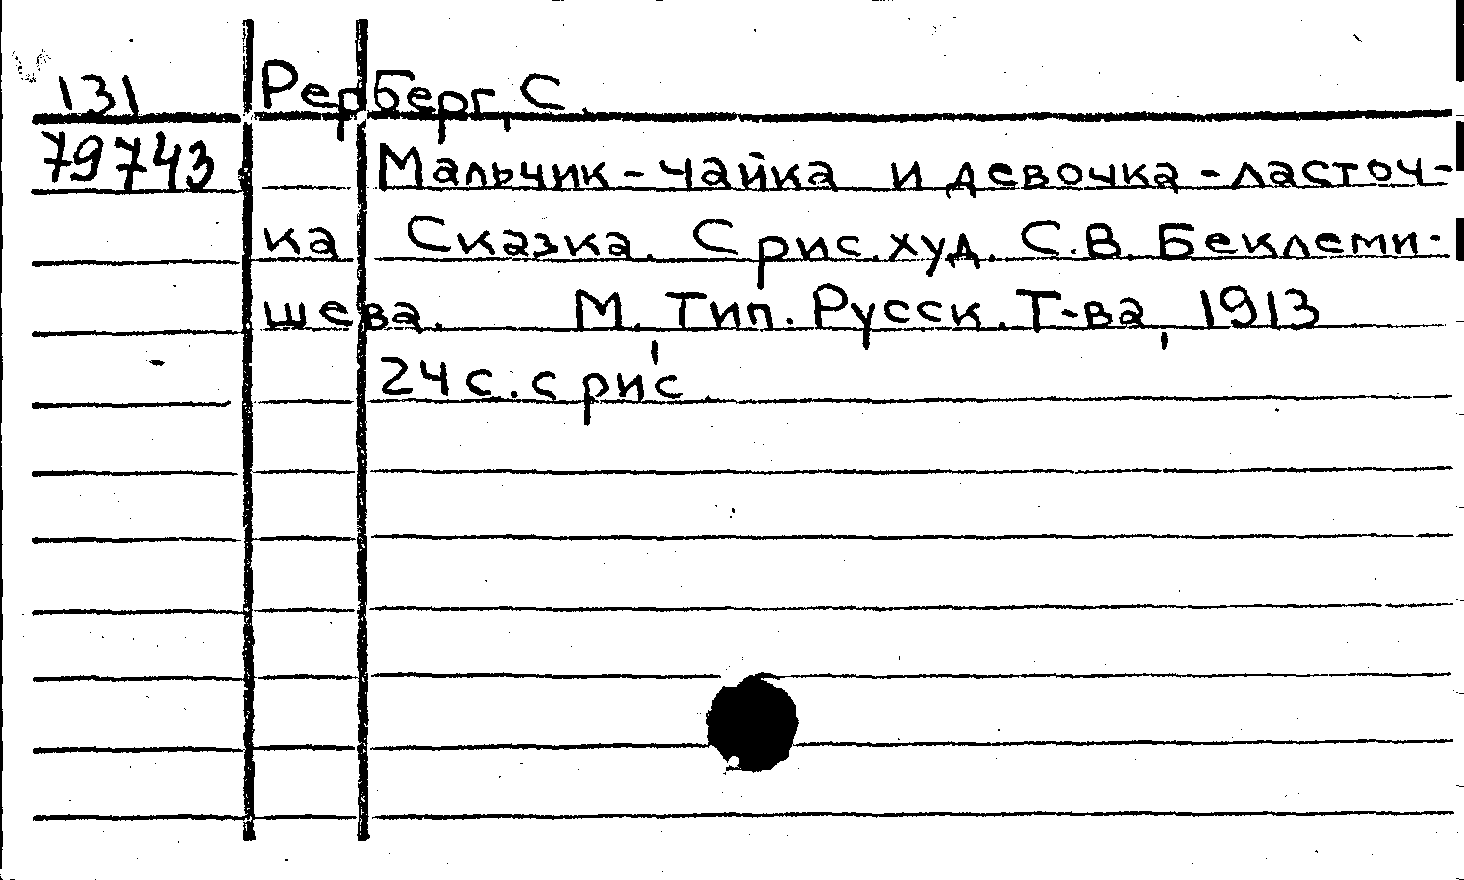 131 Рерберг, С.
79743 Мальчик-чайка и девочка-ласточ-
ка Сказка. С рис. худ. С.В. Беклеми-
шева. М. Тип. Русск. Т-ва, 1913
24 с. с рис.